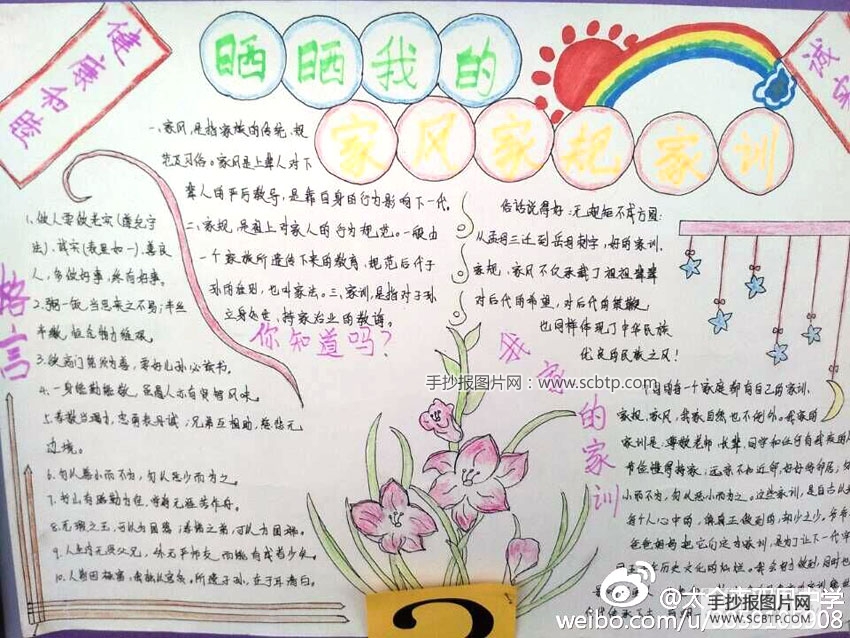 健康和睦
晒晒我的
诚实
家风家规家训
一、家风,是指家族的传统、规
范及习俗。家风是上辈人对下
辈人的严厉教导,是靠自身的行为影响下一代。
二、家规,是祖上对家人的行为规范。一般由
一个家族所遗传下来的教育、规范后代子
孙的准则,也叫家法。三、家训,是指对子孙
立身处世、持家治业的教诲。
你知道吗?
俗话说得好:无规矩不成方圆。
从孟母三迁到岳母刺字,好的家训、
家规、家风不仅承载了祖祖辈辈
对后代的希望,对后代的
也同样体现了中华民族
优良的民族之风!
格言
1、做人要做老实(遵纪守
法)、诚实(表里如一)、善良
人,多做好事,终有好事。
2、粥一饭,当思来之不易;半丝
半缕,恒念物力维艰。
3、欲高门第须为善,要好儿孙必读书。
4、一身能勤能敬,虽愚人亦有贤智风味。
5、孝敬当竭力,忠勇表丹诚;兄弟互相助,慈悲无
边境。
6、勿以善小而不为,勿以恶小而为之。
7、书山有路勤为径,学海无涯苦作舟。
8、无瑕之玉,可以为国器;孝悌之弟,可以为国瑞。
9、人生内无贤父兄,外无严师友,而能有成者少矣。
10、人遗子孙,在于耳清白。
手抄报图片网:www.scbtp.com
我家的家训
每一个家庭都有自己的家训、
家规、家风,我家自然也不例外。我家的
家训是:尊敬老师、长辈、同学和任何自我
节俭懂得持家;远亲不如近邻,好好的邻居;勿
小而不为,勿以恶小而为之。这些家训,是自古以
每个人心中的,擒真正做到的,却少之少。爷爷
爸爸妈妈把它们定为家训,是为了让下一代
历史文化的知识。我会努力做到,同时也
2
手抄报图片网
WWW.SCBTP.COM
weibo.com/u/